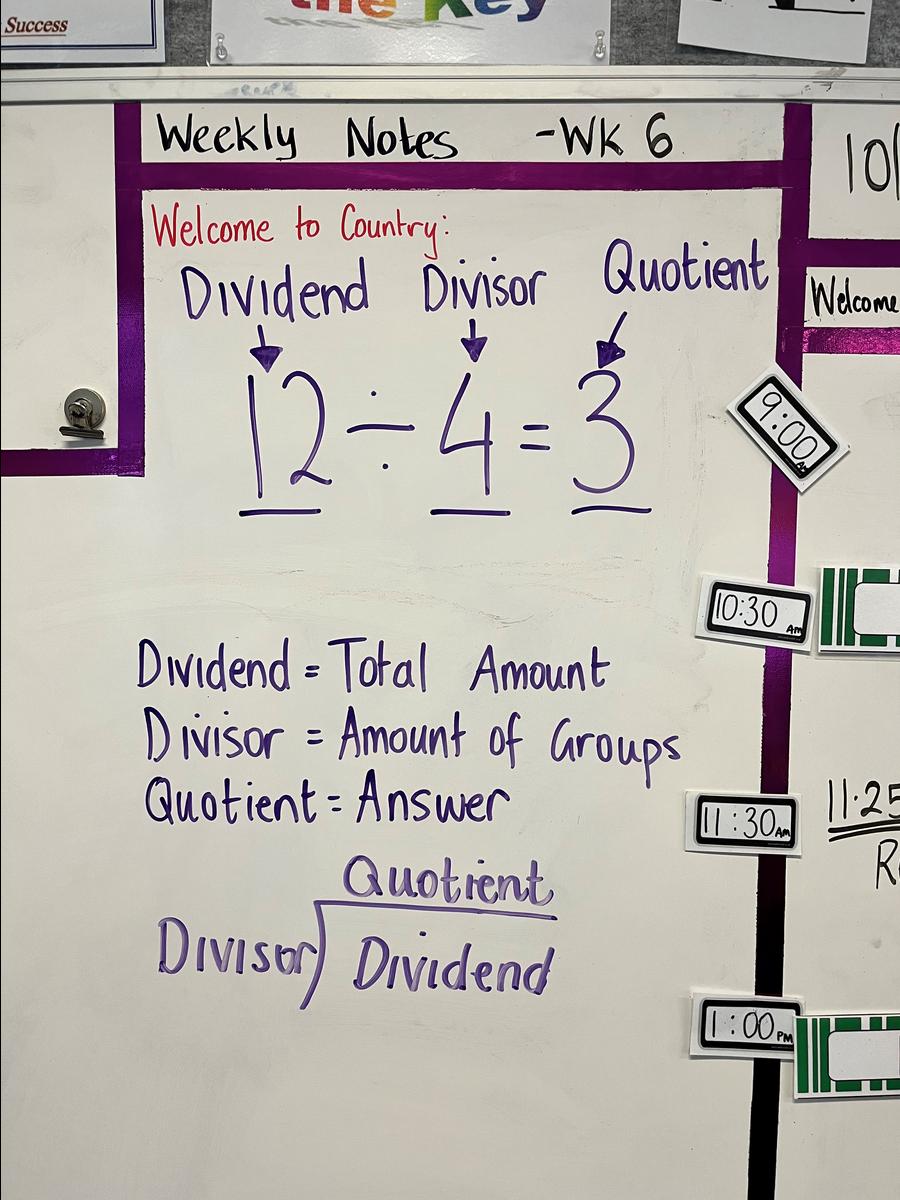 Success
the Key
Weekly Notes -Wk 6
10/
Welcome to Country:
Dividend Divisor Quotient
Welcome
12 ÷ 4 = 3
9:00 AM
10:30 AM
Dividend = Total Amount
Divisor = Amount of Groups
Quotient = Answer
11:30 AM
11.25
R
Quotient
Divisor) Dividend
1:00 PM